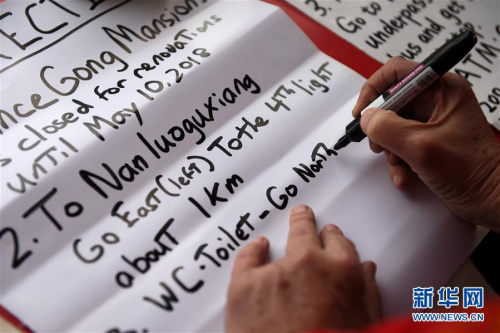 RECTI
nce Gong Mansions
s closed for renovations
until May 10, 2018
2. To Nanluoguxiang
Go East (left) To the 4th light
about 1km
WC. Toilet - Go North
Go to
underpass
bus and get
ATM
新华网
WWW.NEWS.CN